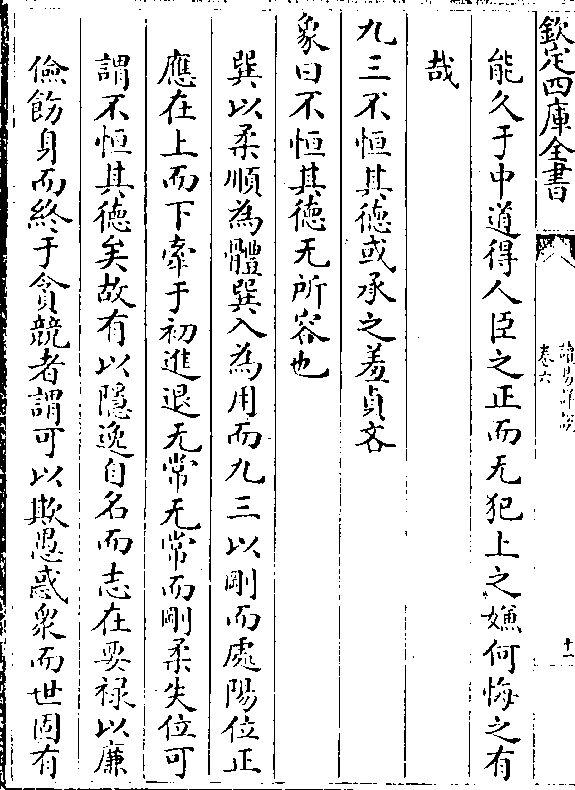 欽定四庫全書
讀易詳說
卷六
十一
能久于中道得人臣之正而无犯上之嫌何悔之有
哉
九三不恒其徳或承之羞貞吝
象曰不恒其徳无所容也
巽以柔順為體巽入為用而九三以剛而處陽位正
應在上而下牽于初進退无常无常而剛柔失位可
謂不恒其徳矣故有以隱逸自名而志在要禄以廉
儉飭身而終于貪競者謂可以欺愚惑衆而世固有